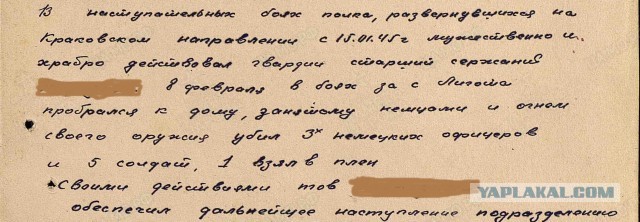 В наступательных боях полка, развернувшихся на
Краковском направлении с 15.01.45г мужественно и
храбро действовал гвардии старший сержант
8 февраля в боях за с Лигота
пробрался к дому, занятому немцами и огнем
своего оружия убил 3х немецких офицеров
и 5 солдат, 1 взял в плен
Своими действиями тов
обеспечил дальнейшее наступление подразделению
YAPLAKAL.COM